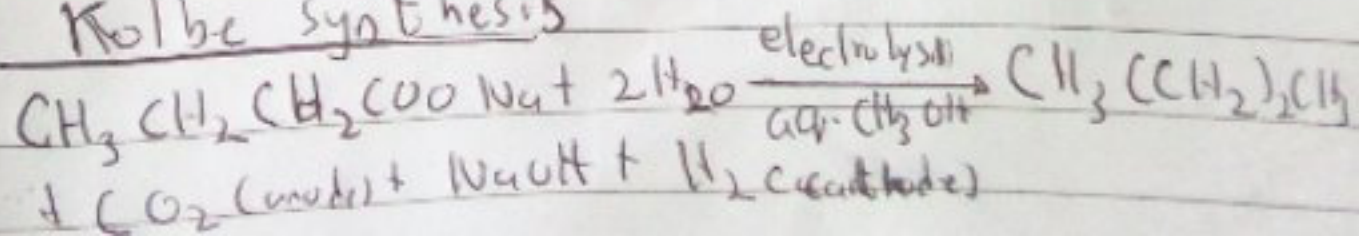 Kolbe Synthesis
CH₃CH₂CH₂COONa + 2H₂O electrolysis aq. CH₃OH → CH₃(CH₂)₂CH₃
+ CO₂ (anode) + NaOH + H₂ (cathode)